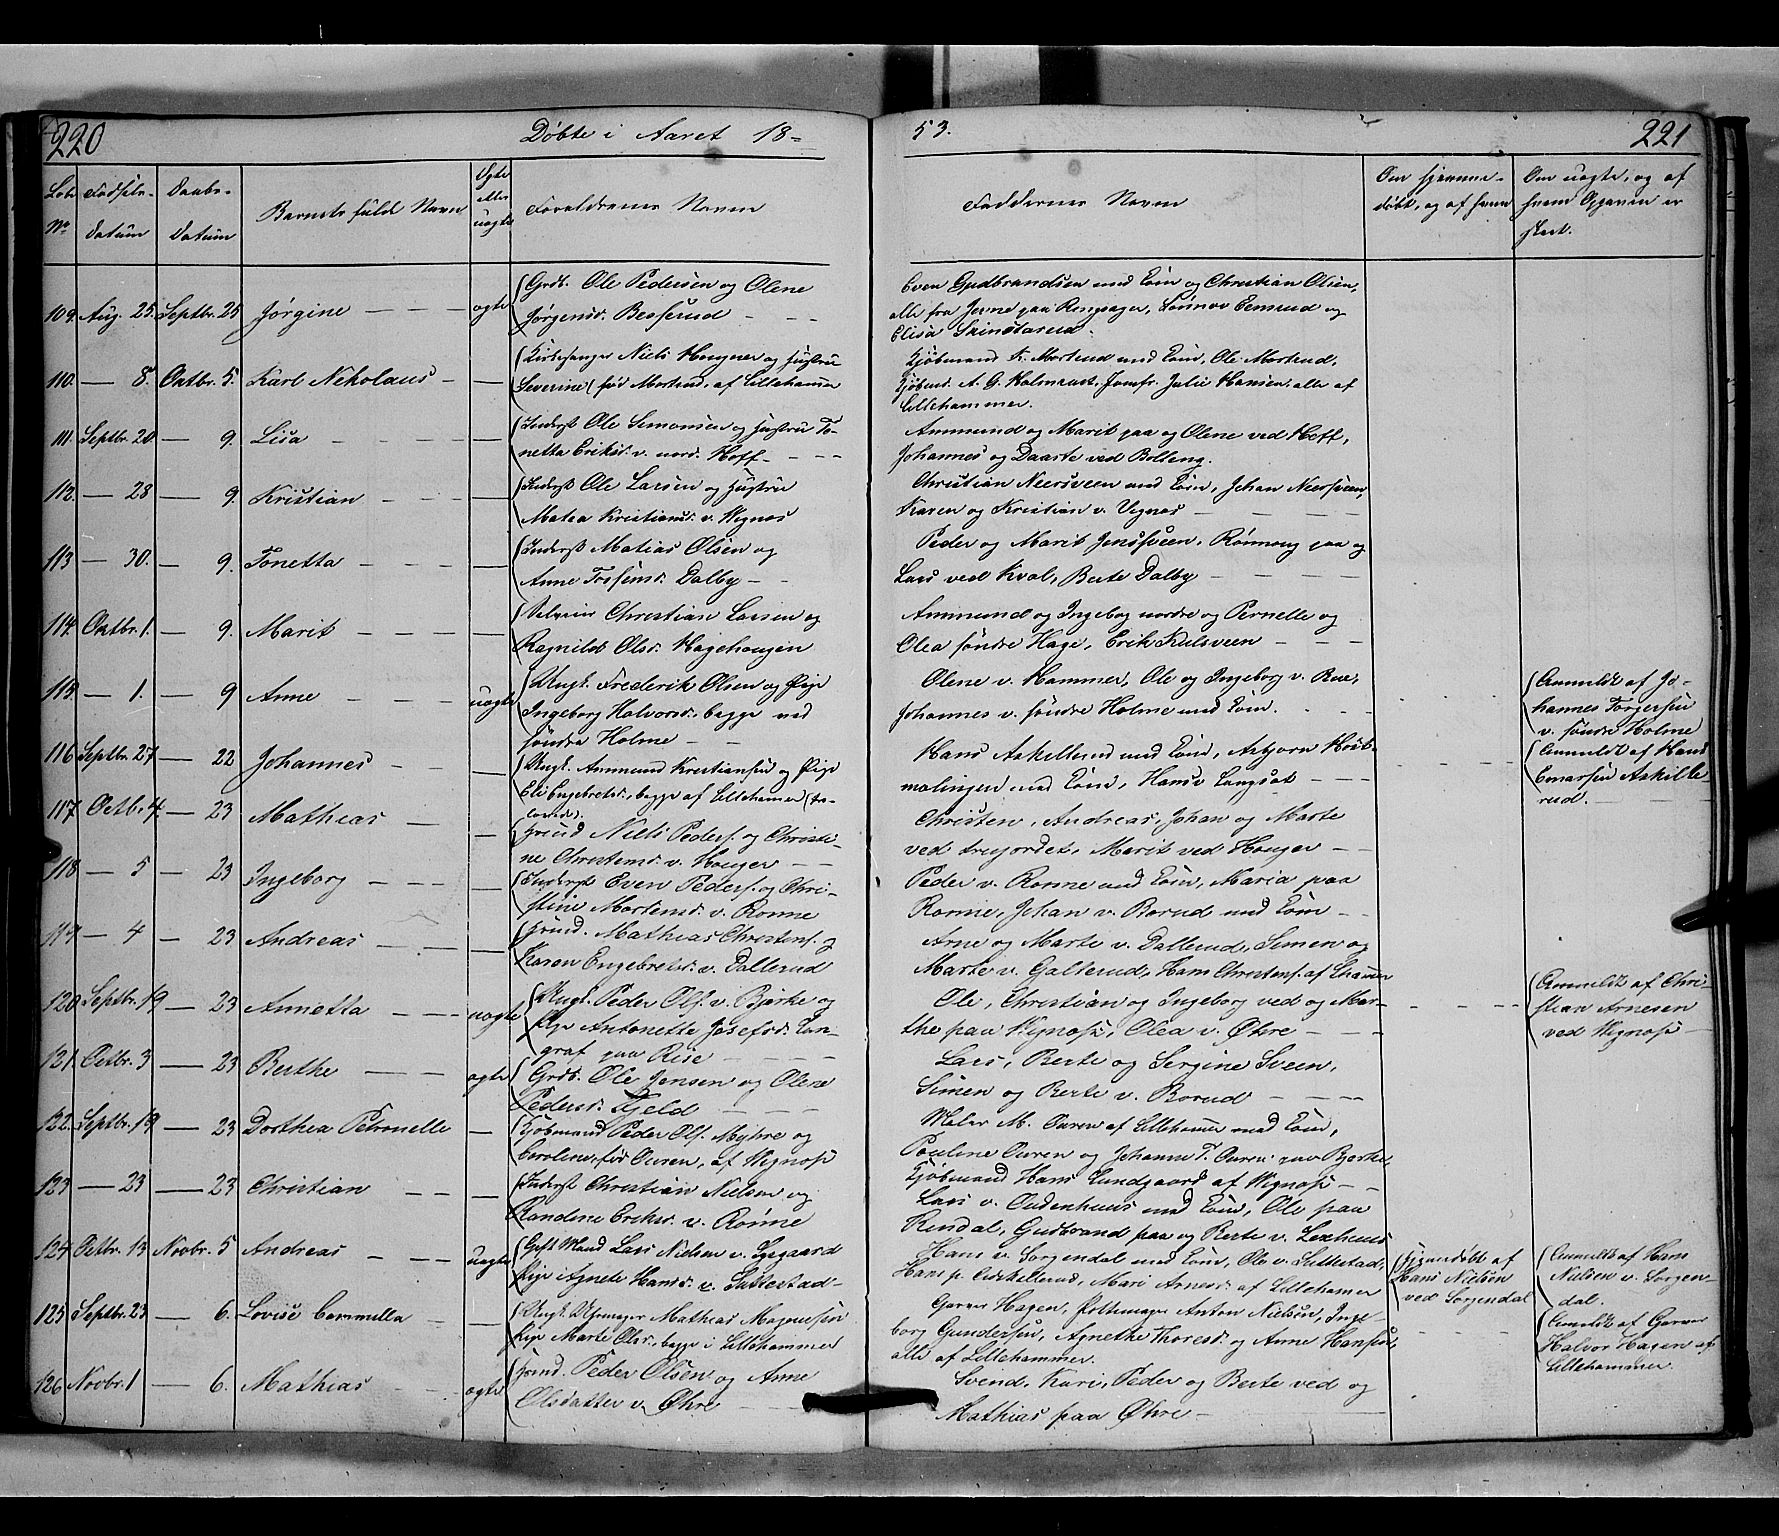 220
Døbte i Aaret 18-
53.
221
Løbe No
Fødsels-Datum
Daabs-Datum
Barnets fulde Navn
Ægte eller uægte
Forældrenes Navn
Faddernes Navn
Om hjemme-døbt, og af hvem
Om uægte, og af hvem Opgaven er skeet.
109. Aug. 25. Septbr. 25 Jørgine — — — ægte
Grdb. Ole Pedersen og Olene
Jørgensd. Besserud — — —
Even Gudbrandsen med Kone og Christian Olsen,
alle fra Jevne paa Ringsager, Lønnov Eensrud og
Elisa Skindstarud.
110. — 8. Octbr. 5. Karl Nikolaus — —
Kirkesanger Niels Haugner og Hustrue
Severine (fød Mortrud, af Lillehammer
Kjøbmand K. Mortrud med Kone, Ole Mortrud,
Kjøbmd. A. G. Holmquist, Jomfr. Julie Hansen, alle af
Lillehammer.
111. Septbr. 20 — 9. Lisa — — — —
Inderst Ole Simonsen og Hustrue To-
netta Eriksd. v. nord. Hoff — — —
Ammund og Marit paa og Olene ved Hoff,
Johannes og Daarte ved Bolleng.
112. — 28 — 9. Kristian — — — —
Inderst Ole Larsen og Hustrue
Matea Kristiansd. v. Vignæs
Christian Neersveen med Kone, Johan Neersveen,
Karen og Kristian v. Vignæs — — — —
113 — 30. — 9. Tonetta — — — —
Inderst Matias Olsen og
Anne Tostensd. Dalby — —
Peder og Marit Jensveen, Rønnoug paa og
Lars ved Kval, Berte Dalby — — — —
114. Oktbr. 1. — 9. Marit — — — —
Christian Larsen og
Ragnild Olsd. Hagehaugen
Ammund og Ingebog nordre og Pernelle og
Olea søndre Hage, Erik — — —
115. — 1. — 9 Anne — — — uægte
Ungk. Frederik Olsen og Pige
Ingeborg Halvorsd., begge ved
søndre Holme — —
Olene v. Hammer, Ole og Ingeborg v. Rue,
Johannes v. søndre Holme med Kone. — — —
Anmeldt af Jo-
hannes Torgersen
v. søndre Holme
116 Septbr. 27 — 22 Johannes — — —
Ungk. Ammund Kristiansen og Pige
Eli Engebretsd., begge af Lillehamer
Hans Askellrud med Kone, Asbjørn
med Kone, Hans Langset — — —
Anmeldt af Hans
Enarsen Askille
rud. —
117 Octbr. 4. — 23 Mathias — —
Grund Niels Peders. og Christi-
ne Christensd. v. Houger — —
Christen, Andreas, Johan og Marte
ved , Marit ved Houger — —
118 — 5 — 23 Ingeborg — — — —
Inderst Even Peders. og Chri-
stine Mortensd. v. Rønne
Peder v. Rønne med Kone, Maria paa
Rønne, Johan v. Borud med Kone — —
119 — 4 — 23 Andreas — — —
Grund. Mathias Christens. og
Karen Engebretsd. v. Dallerud
Arne og Marte v. Dallerud, Simen og
Marte v. Galterud, Hans Christens. af Lhammer
120 Septbr. 19 — 23 Annetta — — — uægte
Ungk. Peder Ols. v. Bjerke og
Pige Antonette Josefsd. Lan-
graf paa Rise — — — —
Ole, Christian og Ingeborg ved og Mar-
the paa Vignæs, Olea v. Øhre — — —
Anmeldt af Chri-
stian Arnesen
ved Vignæs —
121. Octbr. 3 — 23 Berthe — — — ægte
Grdb. Ole Jensen og Olene
Pedersd. Kjeld — — —
Lars, Berte og Sergine Sveen,
Simen og Berte v. Borud — — —
122. Septbr. 19 — 23 Dorthea Petronelle —
Kjøbmand Peder Ols. Myhre og
Caroline, fød Ouren, af Vignæs
Maler M. Ouren af Lillehammer med Kone,
Pauline Ouren og Johanne T. Ouren paa Bjerke,
Kjøbmand Hans Lundgaard af Vignæs — —
123 — 23 — 23 Christian — — —
Inderst Christian Nielsen og
Randine Eriksd. v. Rønne
Lars v. Oudenhuus med Kone, Ole paa
Rindal, Gudbrand paa og Berte v. Lexhuus
124 Octbr. 13 Novbr. 5 Andreas — — — uægte
Gift Mand Lars Nielsen v. Lysgaard
Pige Agnete Hansd. v. Suttestad —
Hans v. Sorgendal med Kone, Ole v. Suttestad,
Hans p. Askellerud, Mari Arnesd. af Lillehamer
Hjemmedøbt af
Hans Nielsen
ved Sorgendal
Anmeldt af Hans
Nielsen v. Sorgen-
dal.
125 Septbr. 23 — 6. Lovise Cammilla — —
Ungk. Uhrmager Mathias Magnussen
Pige Marte Olsd., begge i Lillehammer
Garver Hagen, Pottemager Anton Nielsen, Inge-
borg Gundersen, Agnethe Thoresd. og Anne Hansen,
alle af Lillehammer.
Anmeldt af Garver
Halvor Hagen af
Lillehammer.
126 Novbr. 1 — 6. Mathias — — ægte
Grund. Peder Olsen og Anne
Olsdatter v. Øhre — —
Svend, Kari, Peder og Berte ved og
Mathias paa Øhre —